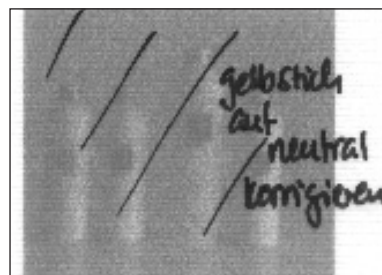 gelbstich
auf
neutral
korrigieren